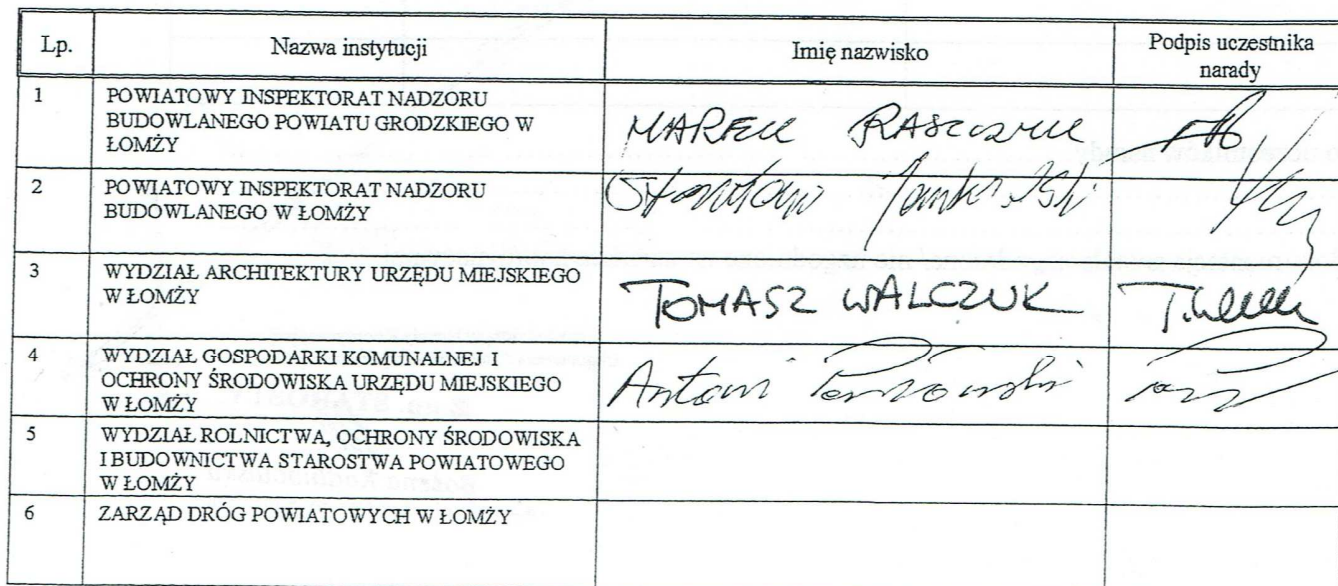 Lp. Nazwa instytucji Imię nazwisko Podpis uczestnika
narady
1 POWIATOWY INSPEKTORAT NADZORU
BUDOWLANEGO POWIATU GRODZKIEGO W
ŁOMŻY
MAREK
2 POWIATOWY INSPEKTORAT NADZORU
BUDOWLANEGO W ŁOMŻY
Stanisław
3 WYDZIAŁ ARCHITEKTURY URZĘDU MIEJSKIEGO
W ŁOMŻY
TOMASZ WALCZUK
4 WYDZIAŁ GOSPODARKI KOMUNALNEJ I
OCHRONY ŚRODOWISKA URZĘDU MIEJSKIEGO
W ŁOMŻY
Antoni
5 WYDZIAŁ ROLNICTWA, OCHRONY ŚRODOWISKA
I BUDOWNICTWA STAROSTWA POWIATOWEGO
W ŁOMŻY
6 ZARZĄD DRÓG POWIATOWYCH W ŁOMŻY